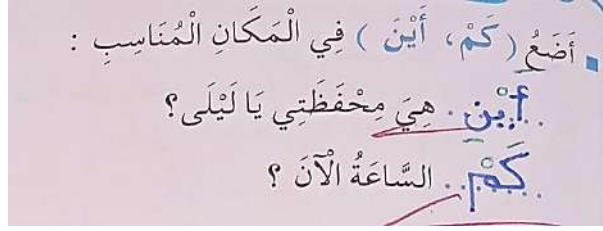 أَضَعُ ( كَمْ، أَيْنَ ) فِي الْمَكَانِ الْمُنَاسِبِ :
أَيْنِ. هِيَ مِحْفَظَتِي يَا لَيْلَى؟
كَمْ.. السَّاعَةُ الْآنَ ؟